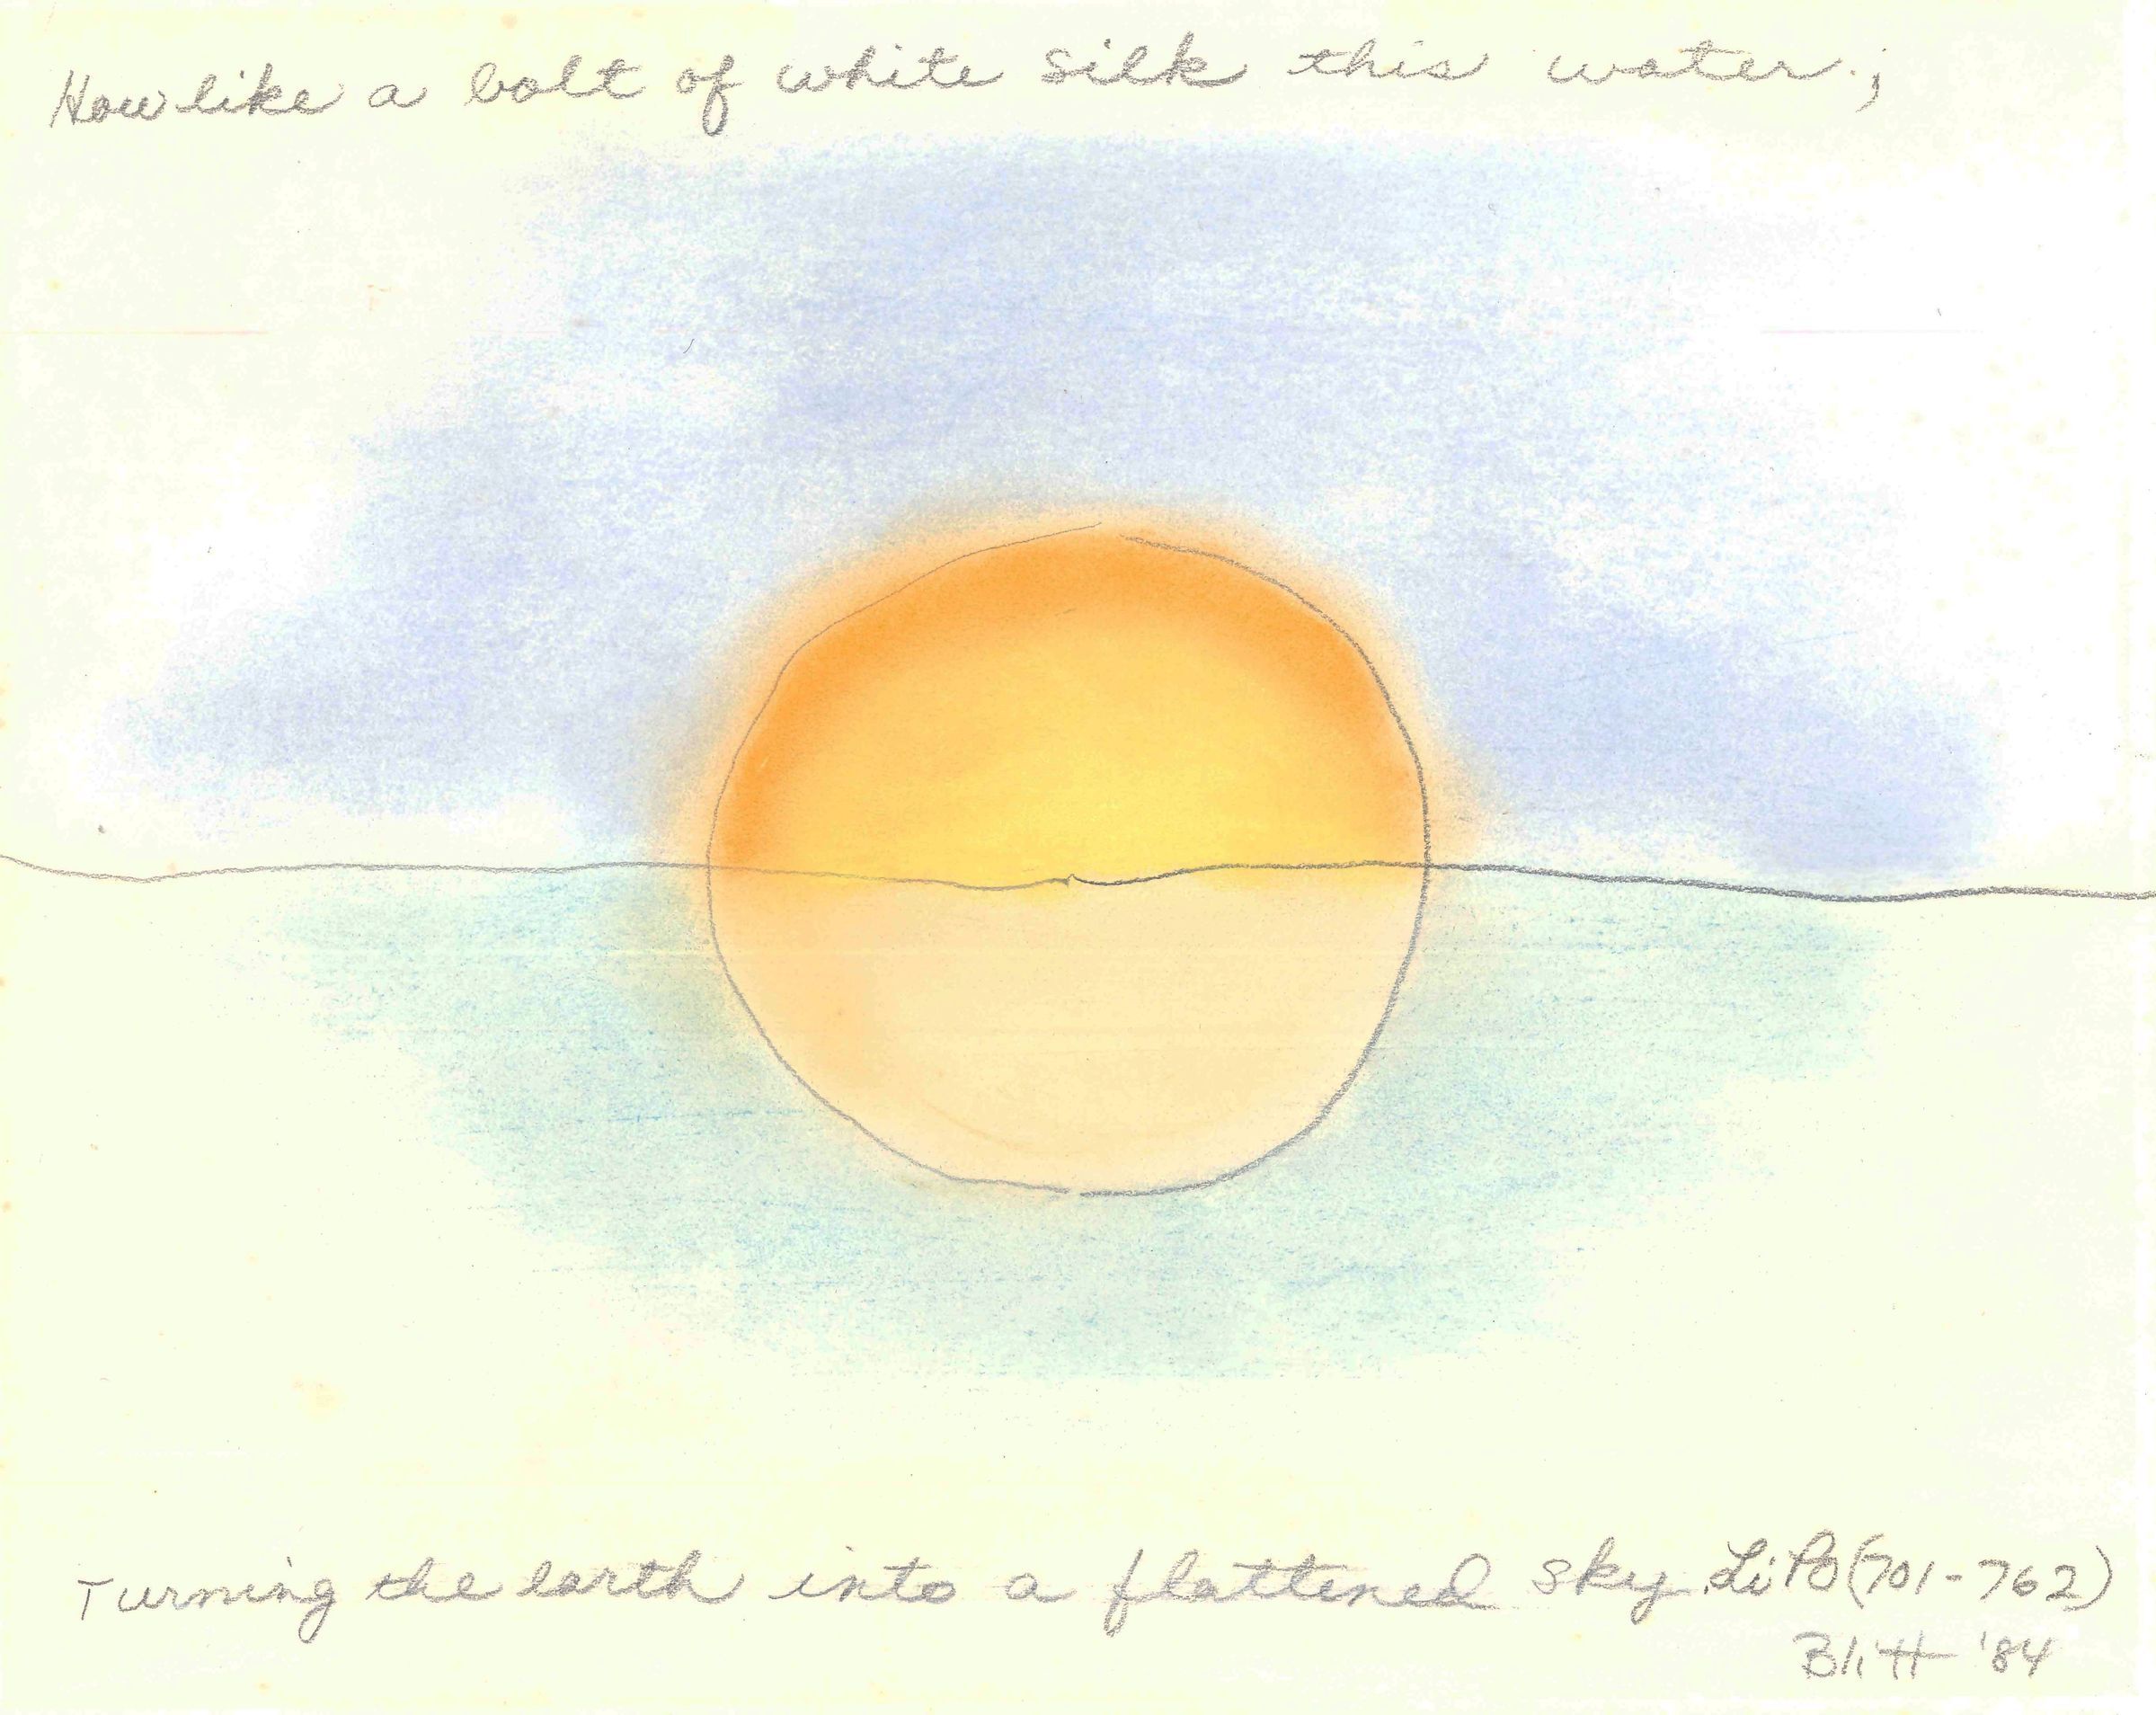 How like a bolt of white silk this water,;
Turning the earth into a flattened sky. Li Po (701-762)
Blitt '84